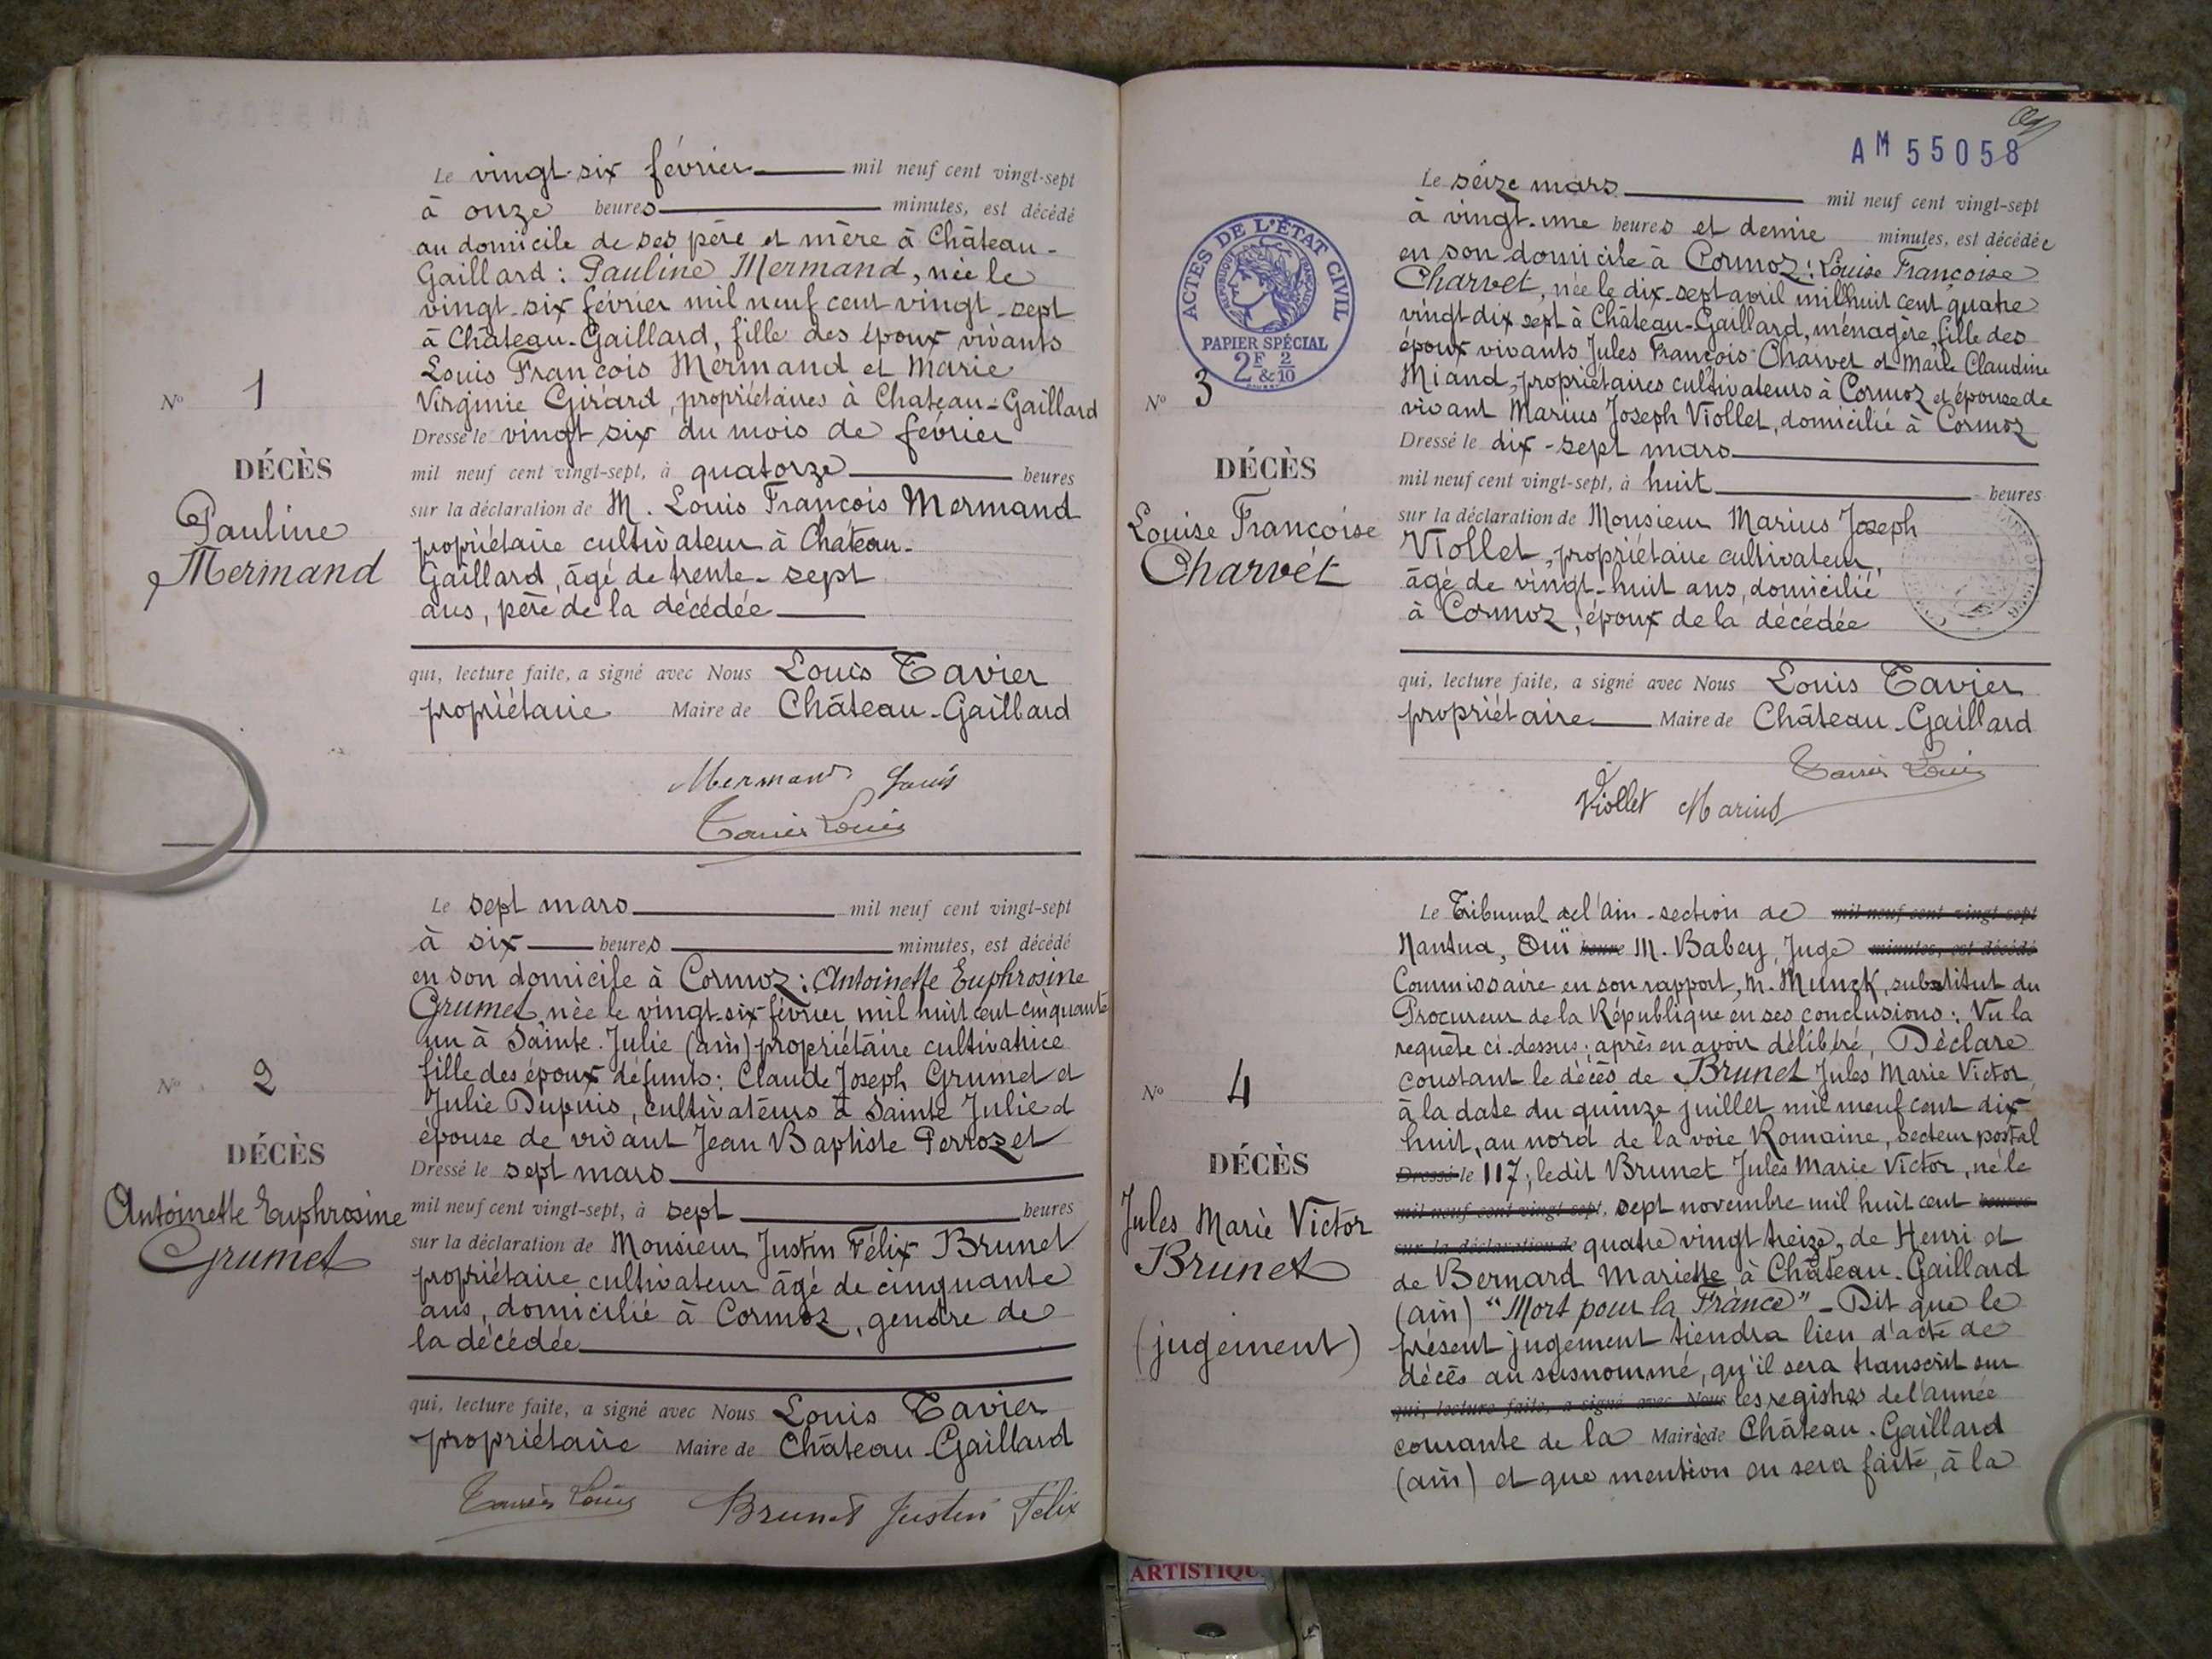 Le vingt-six février mil neuf cent vingt-sept
à onze heures minutes, est décédé
au domicile de ses père et mère à Château-
Gaillard : Pauline Mermand, née le
vingt-six février mil neuf cent vingt-sept
à Château-Gaillard, fille des époux vivants
Louis François Mermand et Marie
Virginie Girard, propriétaires à Chateau-Gaillard
Dressé le vingt six du mois de février
mil neuf cent vingt-sept, à quatorze heures
sur la déclaration de M. Louis François Mermand
propriétaire cultivateur à Château-
Gaillard, âgé de trente-sept
ans, père de la décédée
qui, lecture faite, a signé avec Nous Louis Tavier
propriétaire Maire de Château-Gaillard
Mermand Louis
Tavier Louis
No 1
DÉCÈS
Pauline
Mermand
Le sept mars mil neuf cent vingt-sept
à six heures minutes, est décédé
en son domicile à Cormoz : Antoinette Euphrosine
Grumet, née le vingt-six février mil huit cent cinquante
un à Sainte-Julie (ain) propriétaire cultivatrice
fille des époux défunts : Claude Joseph Grumet et
Julie Dupuis, cultivateurs à Sainte Julie et
épouse de vivant Jean Baptiste Perrozet
Dressé le sept mars
mil neuf cent vingt-sept, à sept heures
sur la déclaration de Monsieur Justin Félix Brunet
propriétaire cultivateur âgé de cinquante
ans, domicilié à Cormoz, gendre de
la décédée
qui, lecture faite, a signé avec Nous Louis Tavier
propriétaire Maire de Château-Gaillard
Tavier Louis Brunet Justin Felix
No 2
DÉCÈS
Antoinette Euphrosine
Grumet
AM 55058
ACTES DE L'ÉTAT CIVIL
RÉPUBLIQUE FRANÇAISE
PAPIER SPÉCIAL
2F & 2/10
Le seize mars mil neuf cent vingt-sept
à vingt-une heures et demie minutes, est décédée
en son domicile à Cormoz : Louise Françoise
Charvet, née le dix-sept avril mil huit cent quatre
vingt dix sept à Château-Gaillard, ménagère, fille des
époux vivants Jules François Charvet et Marie Claudine
Miand, propriétaires cultivateurs à Cormoz et épouse de
vivant Marius Joseph Viollet, domicilié à Cormoz
Dressé le dix-sept mars
mil neuf cent vingt-sept, à huit heures
sur la déclaration de Monsieur Marius Joseph
Viollet, propriétaire cultivateur,
âgé de vingt-huit ans, domicilié
à Cormoz, époux de la décédée
qui, lecture faite, a signé avec Nous Louis Tavier
propriétaire Maire de Château-Gaillard
Tavier Louis
Viollet Marius
No 3
DÉCÈS
Louise Françoise
Charvet
Le Tribunal de l'Ain-section de mil neuf cent vingt-sept
Nantua, Ouï heure M. Babey, Juge minutes, est décédé
Commissaire en son rapport, M. Munck, substitut du
Procureur de la République en ses conclusions : Vu la
requête ci-dessus ; après en avoir délibéré, Déclare
constant le décès de Brunet Jules Marie Victor,
à la date du quinze juillet mil neuf cent dix
huit, au nord de la voie Romaine, secteur postal
Dressé le 117 ; ledit Brunet Jules Marie Victor, né le
mil neuf cent vingt-sept, sept novembre mil huit cent heures
sur la déclaration de quatre vingt treize, de Henri et
de Bernard Mariette à Château-Gaillard
(ain) "Mort pour la France" - Dit que le
présent jugement tiendra lieu d'acte de
décès au susnommé, qu'il sera transcrit sur
qui, lecture faite, a signé avec Nous les registres de l'année
courante de la Mairie de Château-Gaillard
(ain) et que mention en sera faite, à la
No 4
DÉCÈS
Jules Marie Victor
Brunet
(jugement)
ARTISTIQU